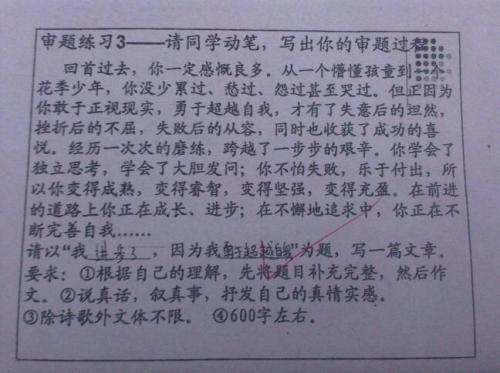 审题练习3——请同学动笔，写出你的审题过程
回首过去，你一定感慨良多。从一个懵懂孩童到一个
花季少年，你没少累过、愁过、怨过甚至哭过。但正因为
你敢于正视现实，勇于超越自我，才有了失意后的坦然，
挫折后的不屈，失败后的从容，同时也收获了成功的喜
悦。经历一次次的磨练，跨越了一步步的艰辛。你学会了
独立思考，学会了大胆发问；你不怕失败，乐于付出，所
以你变得成熟，变得睿智，变得坚强，变得充盈。在前进
的道路上你正在成长、进步；在不懈地追求中，你正在不
断完善自我……
请以“我进步了，因为我勇于超越自我”为题，写一篇文章。
要求：①根据自己的理解，先将题目补充完整，然后作
文。②说真话，叙真事，抒发自己的真情实感。
③除诗歌外文体不限。 ④600字左右。